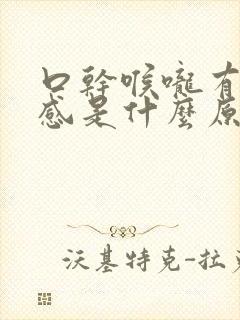 口幹喉嚨有
感是什麼原
沃基特克-拉